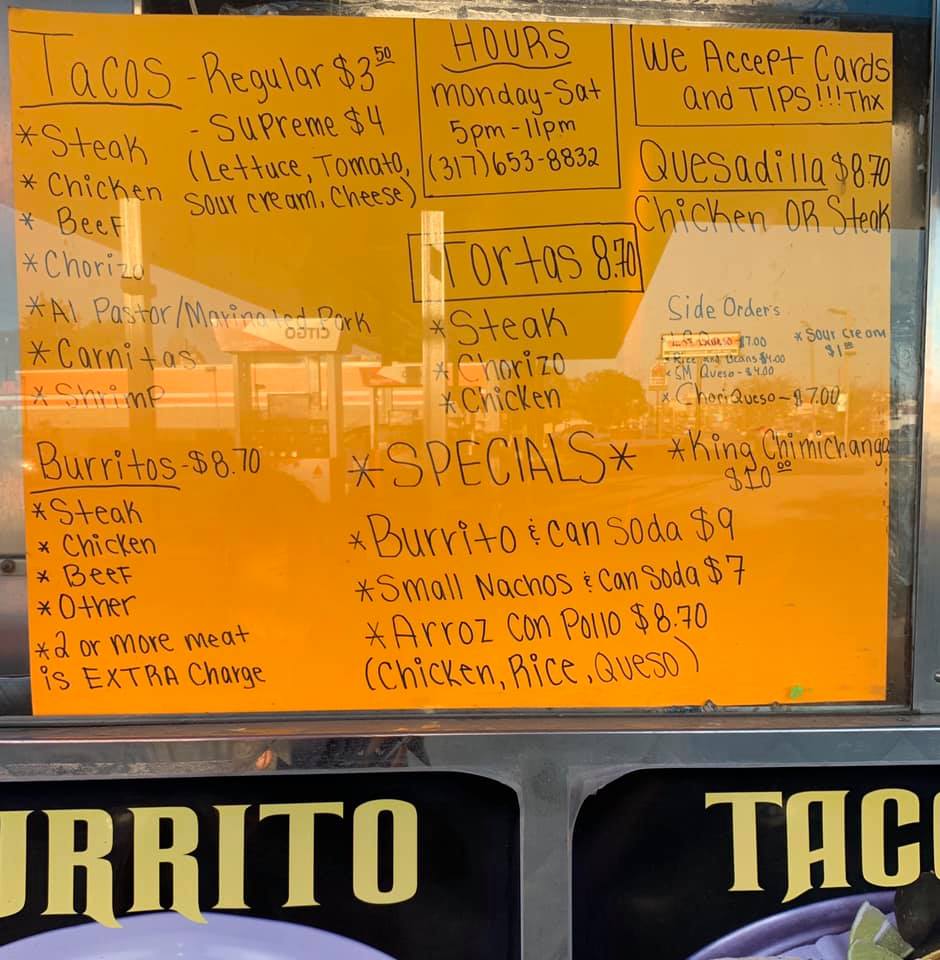 Tacos - Regular $3 50
- Supreme $4
(Lettuce, Tomato,
Sour cream, Cheese)
* Steak
* Chicken
* Beef
* Chorizo
* Al Pastor/Marinated Pork
* Carnitas
* Shrimp
Burritos - $8.70
* Steak
* Chicken
* Beef
* Other
* 2 or more meat
is EXTRA Charge
HOURS
Monday-Sat
5pm-11pm
(317)653-8832
We Accept Cards
and TIPS!!!Thx
Quesadilla $8.70
Chicken OR Steak
Tortas 8.70
* Steak
* Chorizo
* Chicken
Side Orders
$7.00
* Rice and Beans $4.00
* SM Queso - $4.00
* ChoriQueso - $7.00
* Sour Cream
$1 00
*SPECIALS*
* King Chimichanga
$10 00
* Burrito & can Soda $9
* Small Nachos & can Soda $7
* Arroz con Pollo $8.70
(Chicken, Rice, Queso)
URRITO
TACO
CITGO